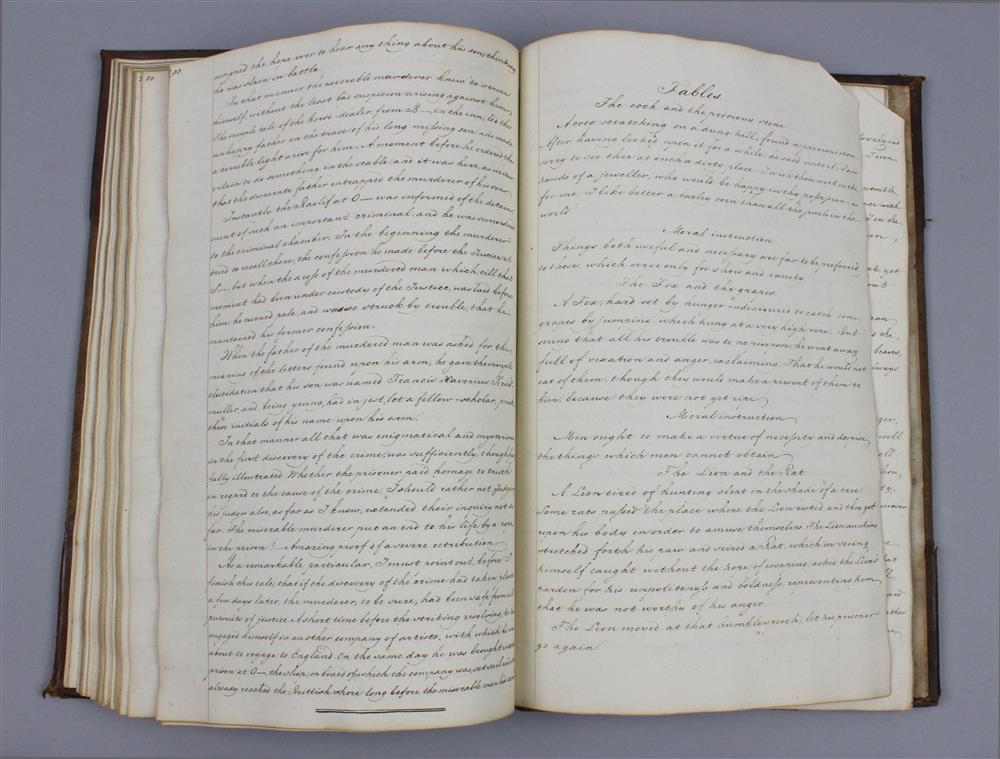 2 80
80.
resigned the hope ever to hear any thing about his son, thinking
he was slain in battle.
In that manner the execrable murderer knew to screen
himself, without the least bad suspicion arising against him,
The simple tale of the horse-dealer from B— in the inn, led the
unhappy father on the trace of his long missing son, and made
a terrible light arise for him. A moment before he ordered the
villain to do something in the stable, and it was here, as we know
that the desperate father entrapped the murderer of his son.
Instantly the Bailif at O— was informed of the detain
ment of such an important criminal, and he was surrendered
to the criminal chamber. In the beginning the murderer
tried to recall there, the confession he made before the Justice at
S—, but when the dress of the murdered man which till that
moment had been under custody of the Justice, was laid before
him, he turned pale, and was so struck by trouble, that he
mantained his former confession.
When the father of the murdered man was asked for the
meaning of the letters found upon his arm, he gave the simple
elucidation that his son was named Francis Xaverius Freid
muller, and, being young, had in jest, let a fellow-scholar, prick
these initials of his name upon his arm.
In that manner all that was enigmatical and mysterious
in the first discovery of the crime, was sufficiently, though
fully illustrated. Whether the prisoner paid homage to truth
in regard to the cause of the crime, I should rather not
his judges also, as far as I know, extended their inquiry not so
far. The miserable murderer put an end to his life by a rope
in the prison! Amazing proof of a severe retribution
As a remarkable particular, I must point out, before I
finish this tale, that if the discovery of the crime had taken place
a few days later, the murderer, to be sure, had been safe from all
pursuits of justice. A short time before the striking resolving, he
engaged himself in an other company of artists, with which he was
about to voyage to England. On the same day he was brought into
prison at O—, the ship, on board of which the company was, set sail and
already reached the Brittish shore long before the miserable man his
Fables.
The cock and the precious stone
A cocq scratching on a dung-hill, found a precious stone.
After having looked upon it for a while, he said unto it: I am
sorry to see thee at such a dirty place. Thou wert in the
hands of a jeweller, who would be happy in thy possession; as
for me, I like better a barley corn than all the jewels in the
world.
Moral instruction
Things both useful and necessary are far to be preferred
to those, which serve only for show and vanity
The Fox and the grapes
A Fox, hard set by hunger indeavoured to catch some
grapes by jumping, which hung at a very high vine. But
seeing that all his trouble was to no purpose, he went away
full of vexation and anger, exclaiming: That he would not
eat of them, though they would make a present of them to
him, because they were not yet ripe
Moral instruction
Men ought to make a virtue of necessity and despise
the things which men cannot obtain
The Lion and the Rat
A Lion tired of hunting slept in the shade of a tree
Some rats passed the place where the Lion rested and they got
upon his body in order to amuse themselves. The Lion awaking
stretched forth his paw and seized a Rat, which on seeing
himself caught without the hope of escaping, asked the Lion's
pardon for his unpoliteness and boldness representing him
that he was not worthy of his anger
The Lion moved at that humble speech, let his prisoner
go again.